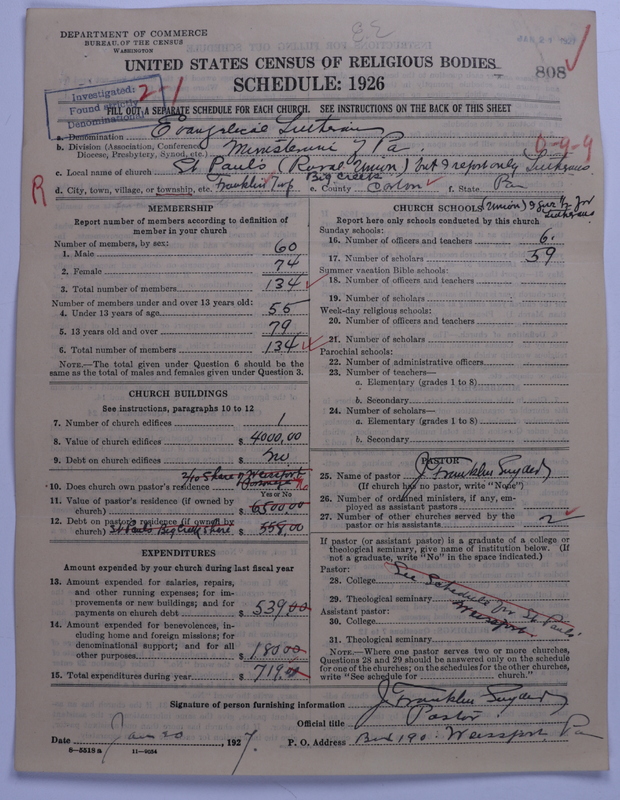 DEPARTMENT OF COMMERCE
BUREAU OF THE CENSUS
WASHINGTON
UNITED STATES CENSUS OF RELIGIOUS BODIES
808
SCHEDULE: 1926
Investigated:
Found strictly
Denominational
2-1
FILL OUT A SEPARATE SCHEDULE FOR EACH CHURCH. SEE INSTRUCTIONS ON THE BACK OF THIS SHEET
a. Denomination Evangelical Lutheran
b. Division (Association, Conference, Diocese, Presbytery, Synod, etc.) Ministerium of Pa.
0-4-9
c. Local name of church St Paul's (Rural Union) but I report only Lutherans
Big Creek
R
d. City, town, village, or township, etc. Franklin Twp e. County Carbon f. State Pa
MEMBERSHIP
Report number of members according to definition of
member in your church
Number of members, by sex:
1. Male 60
2. Female 74
3. Total number of members 134
Number of members under and over 13 years old:
4. Under 13 years of age 55
5. 13 years old and over 79
6. Total number of members 134
NOTE.—The total given under Question 6 should be
same as the total of males and females given under Question 3.
CHURCH BUILDINGS
See instructions, paragraphs 10 to 12
7. Number of church edifices 1
8. Value of church edifices $ 4000.00
9. Debt on church edifices $ No
2/10 Share of Weissport
Parsonage
10. Does church own pastor's residence No
Yes or No
11. Value of pastor's residence (if owned by
church) $ 6500.00
12. Debt on pastor's residence (if owned by
church) St Pauls Big Creek Share $ 558.00
EXPENDITURES
Amount expended by your church during last fiscal year
13. Amount expended for salaries, repairs,
and other running expenses; for im-
provements or new buildings; and for
payments on church debt $ 539.00
14. Amount expended for benevolences, in-
cluding home and foreign missions; for
denominational support; and for all
other purposes $ 180.00
15. Total expenditures during year $ 719.00
CHURCH SCHOOLS (Union) I give 1/2 for
Lutherans
Report here only schools conducted by this church
Sunday schools:
16. Number of officers and teachers 6.
17. Number of scholars 59
Summer vacation Bible schools:
18. Number of officers and teachers
19. Number of scholars
Week-day religious schools:
20. Number of officers and teachers
21. Number of scholars
Parochial schools:
22. Number of administrative officers
23. Number of teachers—
a. Elementary (grades 1 to 8)
b. Secondary
24. Number of scholars—
a. Elementary (grades 1 to 8)
b. Secondary
PASTOR
25. Name of pastor J. Franklin Snyder
(If church has no pastor, write "None")
26. Number of ordained ministers, if any, em-
ployed as assistant pastors
27. Number of other churches served by the
pastor or his assistants 2
If pastor (or assistant pastor) is a graduate of a college or
theological seminary, give name of institution below. (If
not a graduate, write "No" in the space indicated.)
Pastor:
28. College
See Schedule for St Pauls
Weissport
29. Theological seminary
Assistant pastor:
30. College
31. Theological seminary
NOTE.—Where one pastor serves two or more churches,
Questions 28 and 29 should be answered only on the schedule
for one of the churches; on the schedules for the other churches,
write "See schedule for church."
Signature of person furnishing information J. Franklin Snyder
Official title Pastor
Date Jan 20, 1927. P. O. Address Box 190. Weissport, Pa
8—5518 a 11—9124